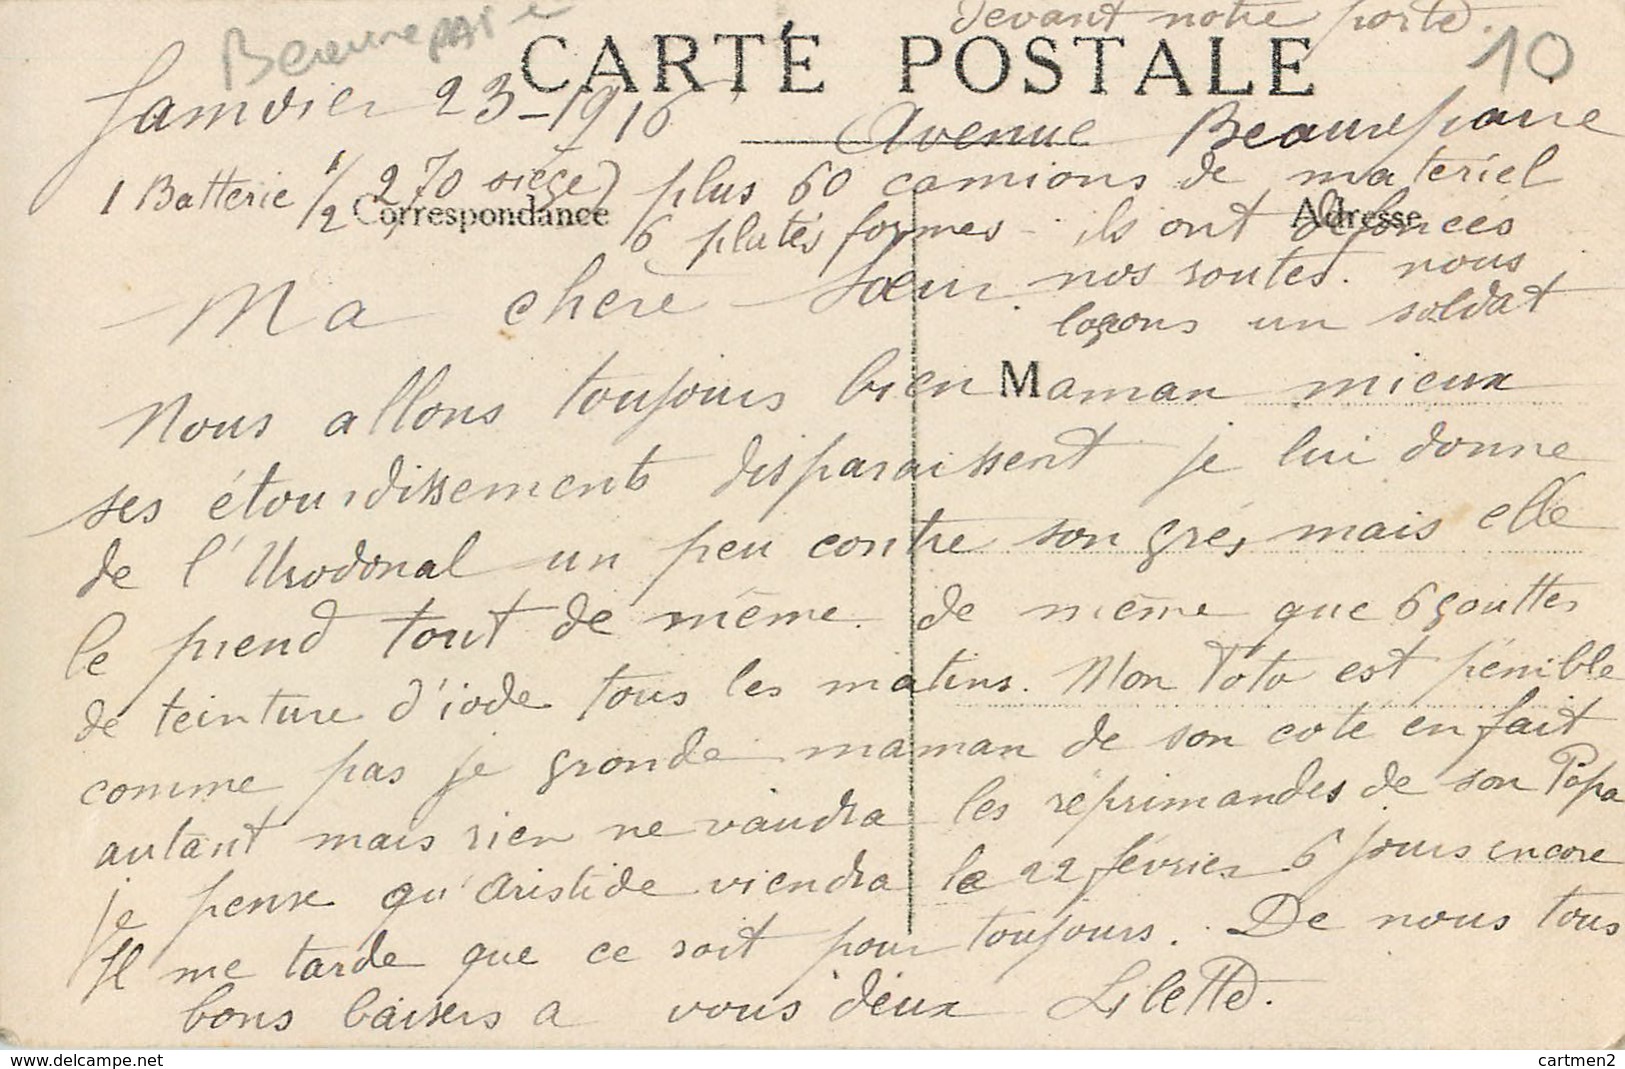 Devant notre porte.
Beaurepaire
10
CARTE POSTALE
Janvier 23-1916
Avenue Beaurepaire
1 Batterie 1/2 270 siège) plus 60 camions de materiel
Correspondance
Adresse
6 plates formes - ils ont défoncés
nos routes. nous
logeons un soldat
Ma chere Sœur
Nous allons toujours bien Maman mieux
ses étourdissements disparaissent je lui donne
de l'Urodonal un peu contre son gré, mais elle
le prend tout de même. de même que 6 gouttes
de teinture d'iode tous les matins. Mon Toto est pénible
comme pas je gronde maman de son coté en fait
autant mais rien ne vaudra les réprimandes de son Papa
je pense qu'Aristide viendra le 22 février 6 jours encore
Il me tarde que ce soit pour toujours. De nous tous
bons baisers a vous deux Lilette.
www.delcampe.net
cartmen2